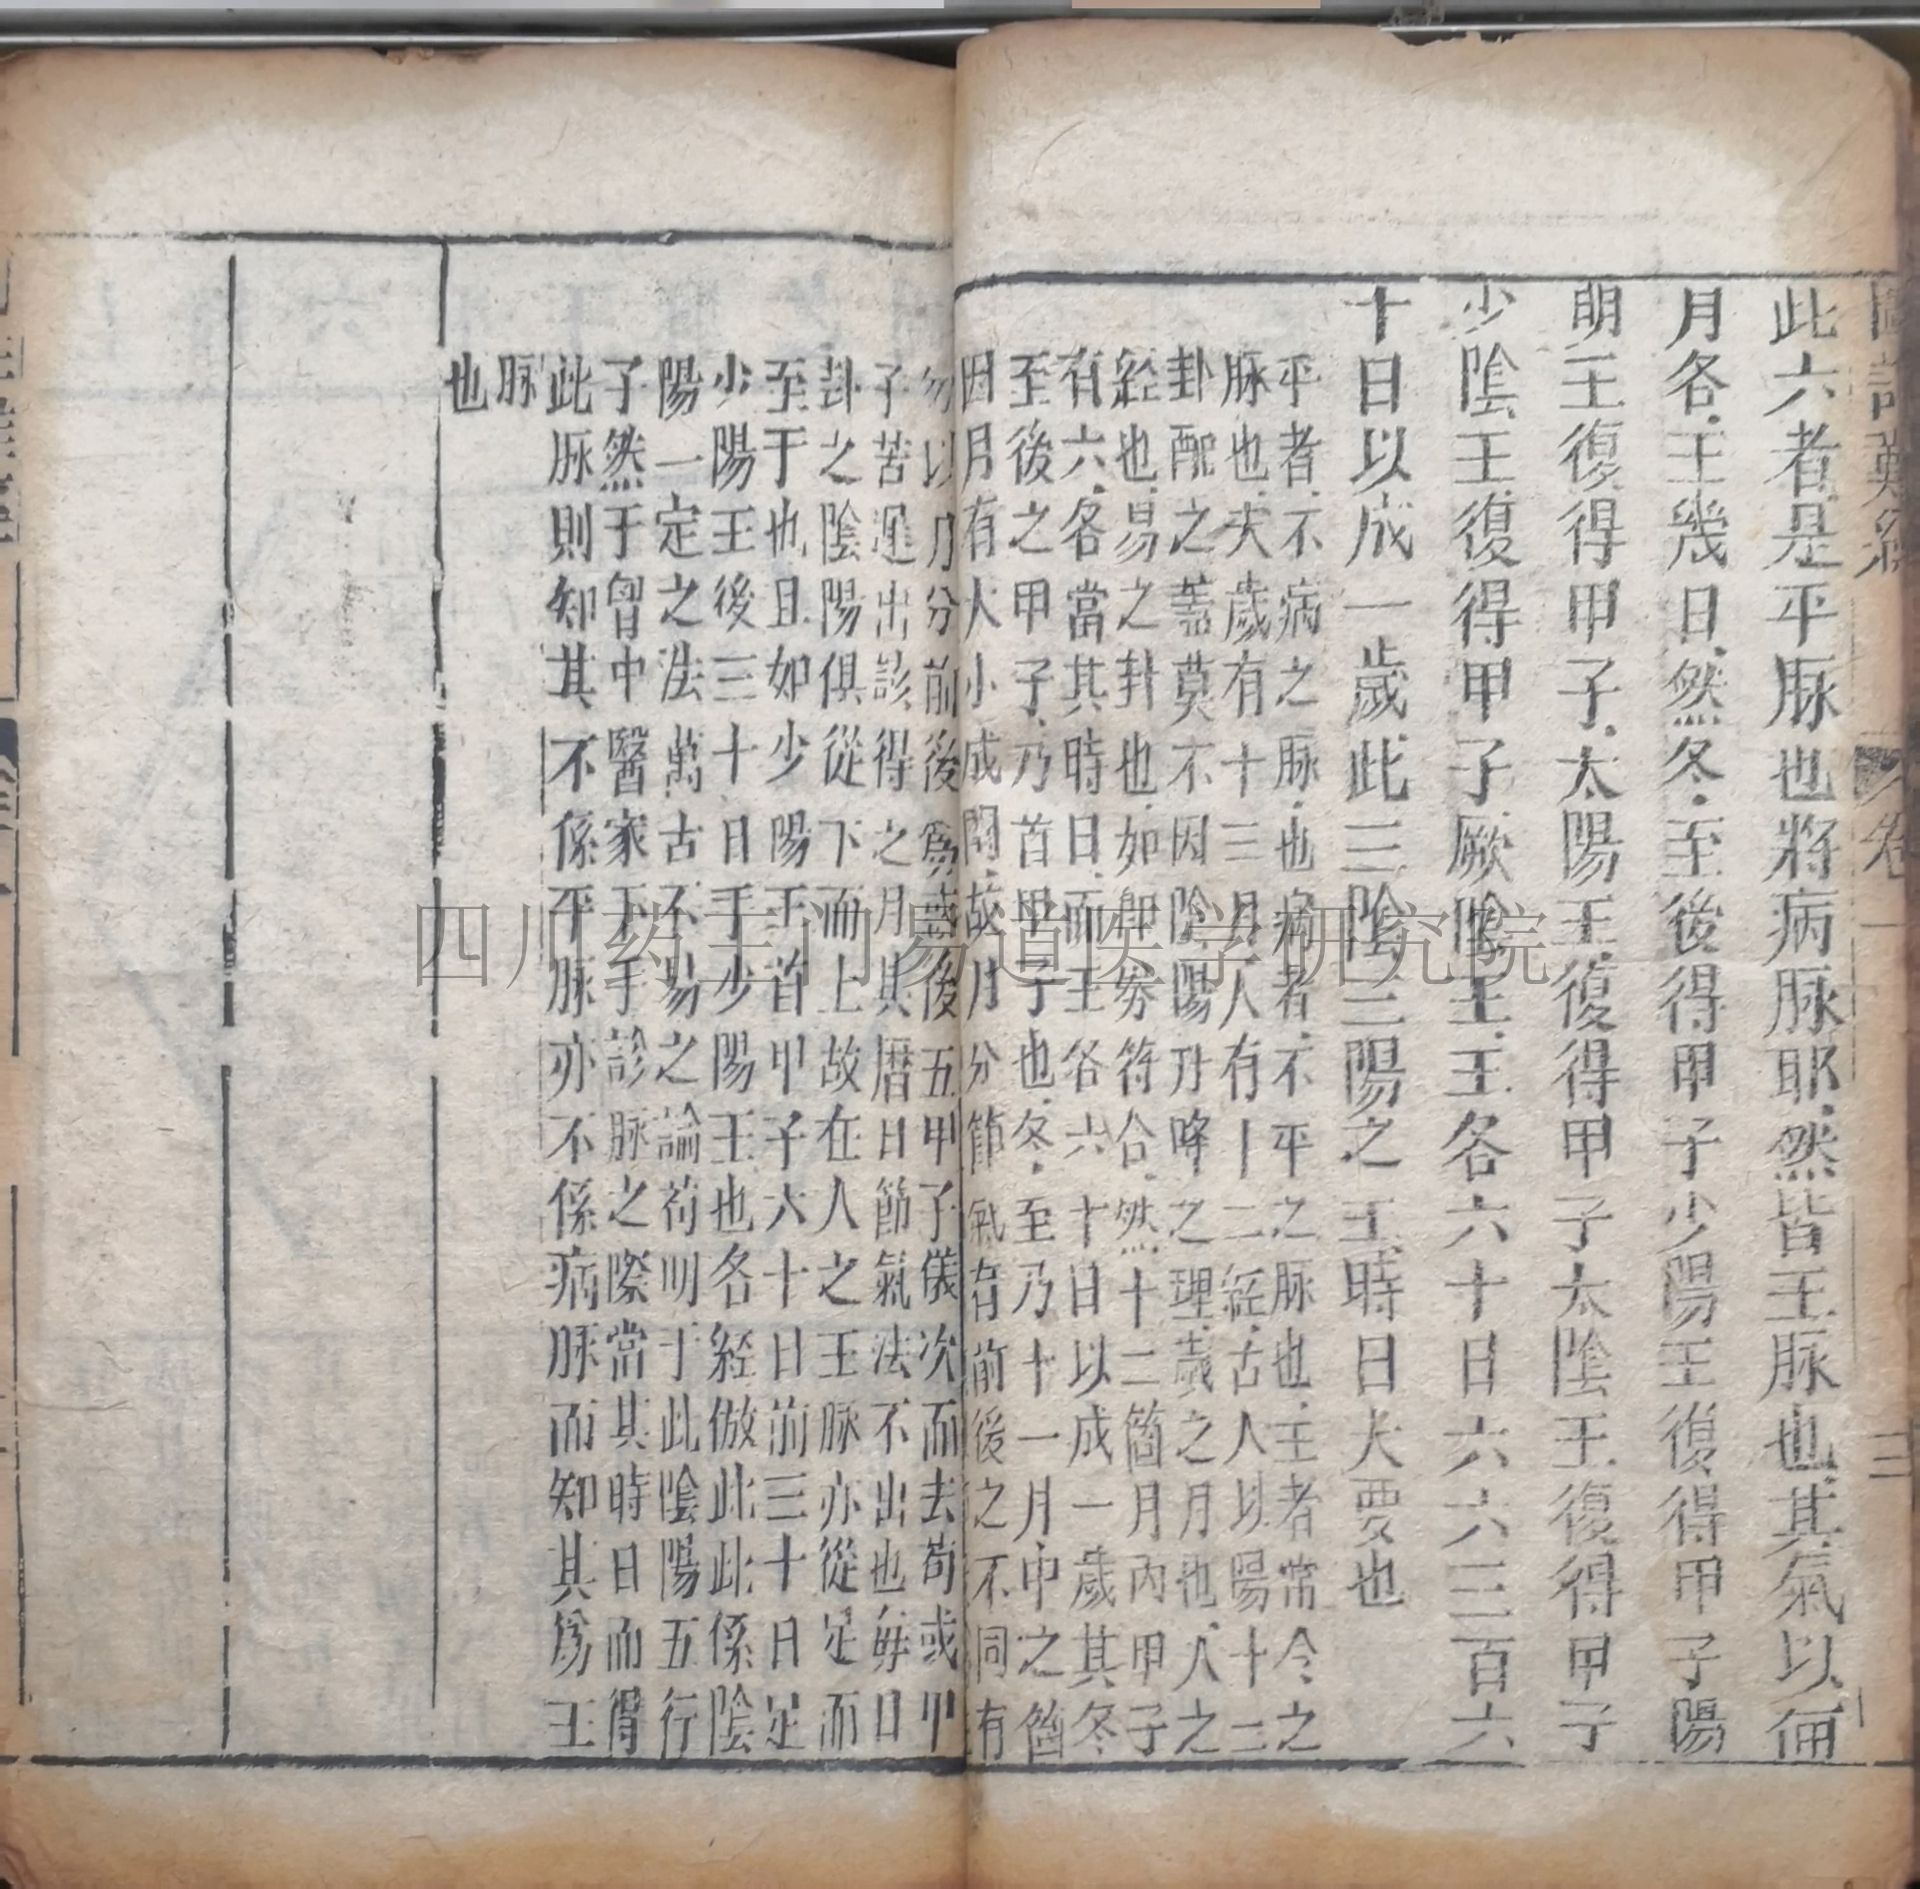 此六者是平脉也將病脉耶然皆王脉也其氣以何
月各王幾日然冬至後得甲子少陽王復得甲子陽
明王復得甲子太陽王復得甲子太陰王復得甲子
少陰王復得甲子厥陰王王各六十日六六三百六
十日以成一歲此三陰三陽之王時日大要也
平者不病之脉也病者不平之脉也王者常今之
脉也夫歲有十二月人有十二經古人以陽十二
卦配之蓋莫不因陰陽升降之理歲之月也人之
經也易之卦也如卽券符合然十二箇月內甲子
有六各當其時日而王各六十日以成一歲其冬
至後之甲子乃首甲子也冬至乃十一月中之箇
因月有大小成閏故月分節氣有前後之不同有
勿以月分前後爲惑後五甲子儀次而去苟或甲
子苦遲出該得之月其曆日節氣法不出也每日
卦之陰陽俱從下而上故在人之王脉亦從足而
至于也且如少陽王首甲子六十日前三十日足
少陽王後三十日手少陽王也各經倣此此係陰
陽一定之法萬古不易之論苟明于此陰陽五行
子然于胷中醫家下手診脉之際當其時日而得
此脉則知其不係平脉亦不係病脉而知其爲王
脉
也
卷一
三
四川药王门易道医学研究院